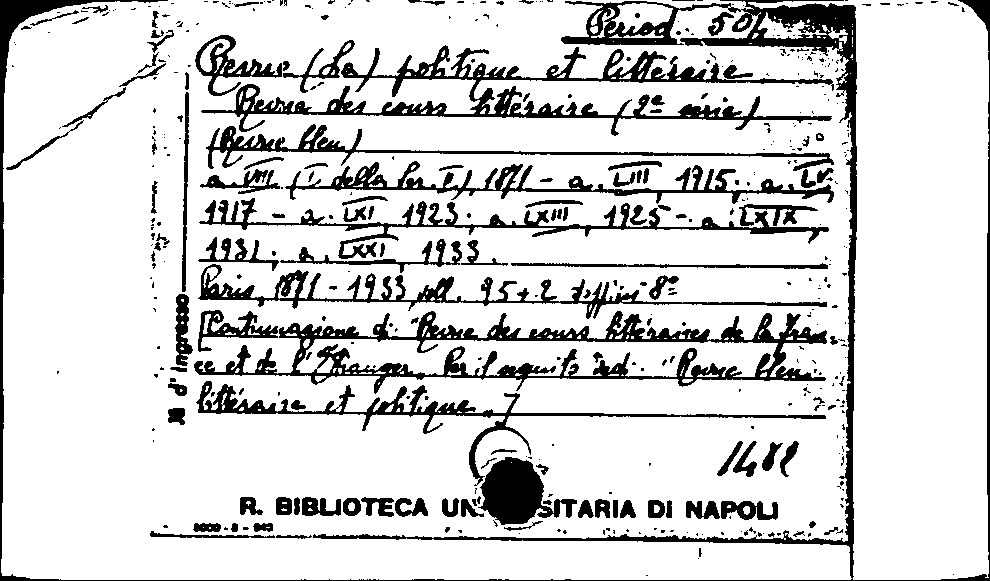 Period. 504
Revue (La) politique et littéraire
Revue des cours littéraire (2ª série)
(Revue bleu)
a. VIII (I della Ser. II), 1871 - a. LIII, 1915; a. LV,
1917 - a. LXI, 1923; a. LXIII, 1925 - a. LXIX,
1931; a. LXXI, 1933.
Paris, 1871 - 1933, voll. 95 + 2 8º
[Continuazione di "Revue des cours littéraires de la Fran-
ce et de l'Etranger„ Per il seguito vedi: "Revue bleu
littéraire et politique„]
1482
N d' Ingresso
R. BIBLIOTECA UN SITARIA DI NAPOLI